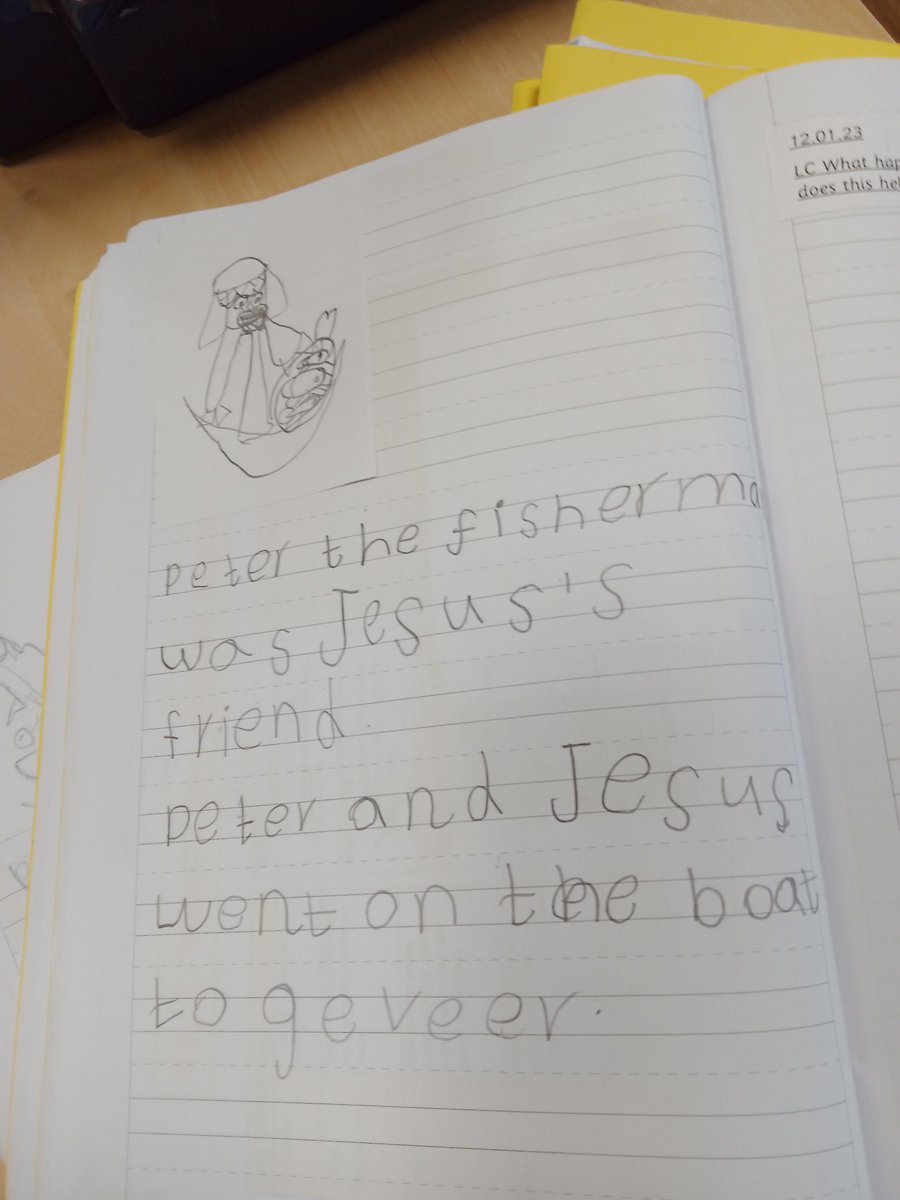 peter the fisherma
was Jesus's
friend.
peter and Jesus
went on the boat
togeveer.
12.01.23
LC What hap
does this hel